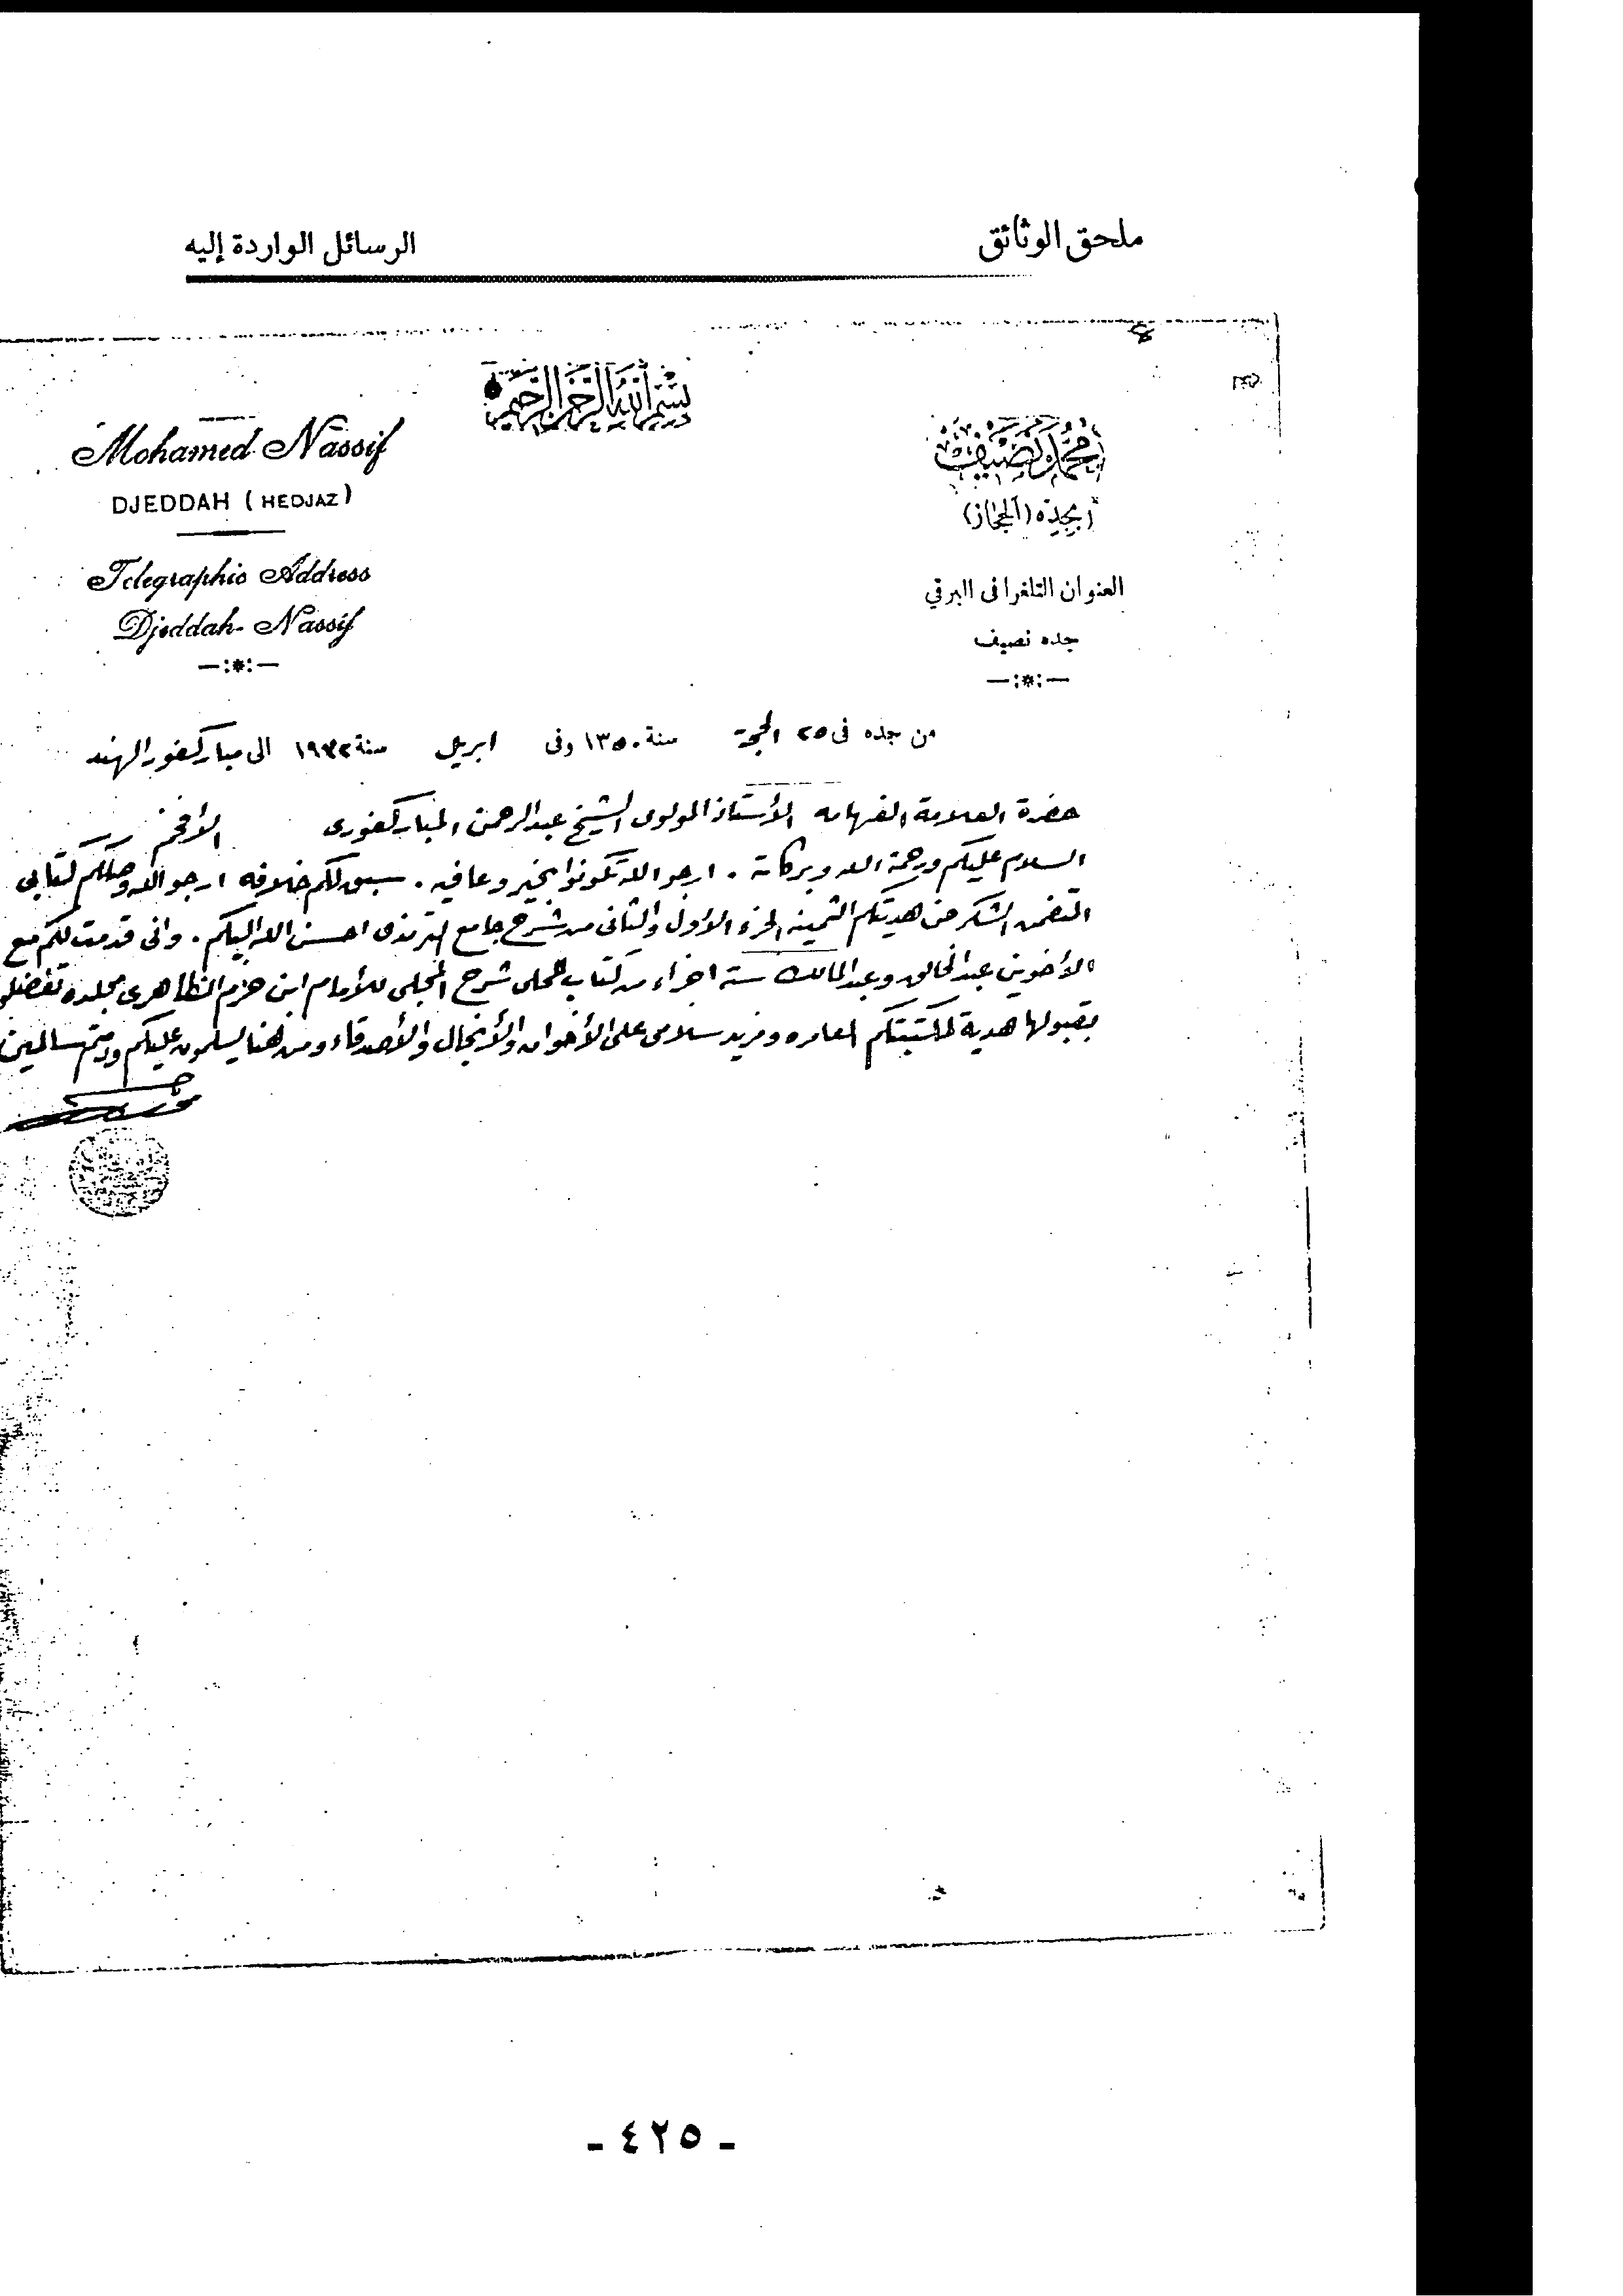 ملحق الوثائق
الرسائل الواردة إليه
بسم الله الرحمن الرحيم
محمد نصيف
بجدة (الحجاز)
العنوان التلغرافى البرقي
جده نصيف
Mohamed Nassif
DJEDDAH (HEDJAZ)
Telegraphic Address
Djeddah-Nassif
من جده فى ٢٥ الحجة سنة ١٣٥٠ وفى ابريل سنة ١٩٣٢ الى مباركفور الهند
حضرة العلامة الفهامه الأستاذ المولوى الشيخ عبد الرحمن المباركفورى الافخم
السلام عليكم ورحمة الله وبركاته . ارجو الله تكونوا بخير وعافيه . سبق لكم خلافه ارجو الله وصلكم كتابى
المتضمن الشكر من هديتكم الثمينه الجزء الأول والثانى من شرح جامع الترمذى احسن الله اليكم . وانى قدمت لكم مع
الأخوين عبد الخالق وعبد المالك ستة اجزاء من كتاب المحلى شرح المجلى للأمام ابن حزم الظاهرى مجلده تفضلو
بقبولها هدية لمكتبتكم العامره ومزيد سلامى على الأخوان والأنجال والأصدقاء ومن هنا يسلمون عليكم ودمتم سالمين
- ٤٢٥ -